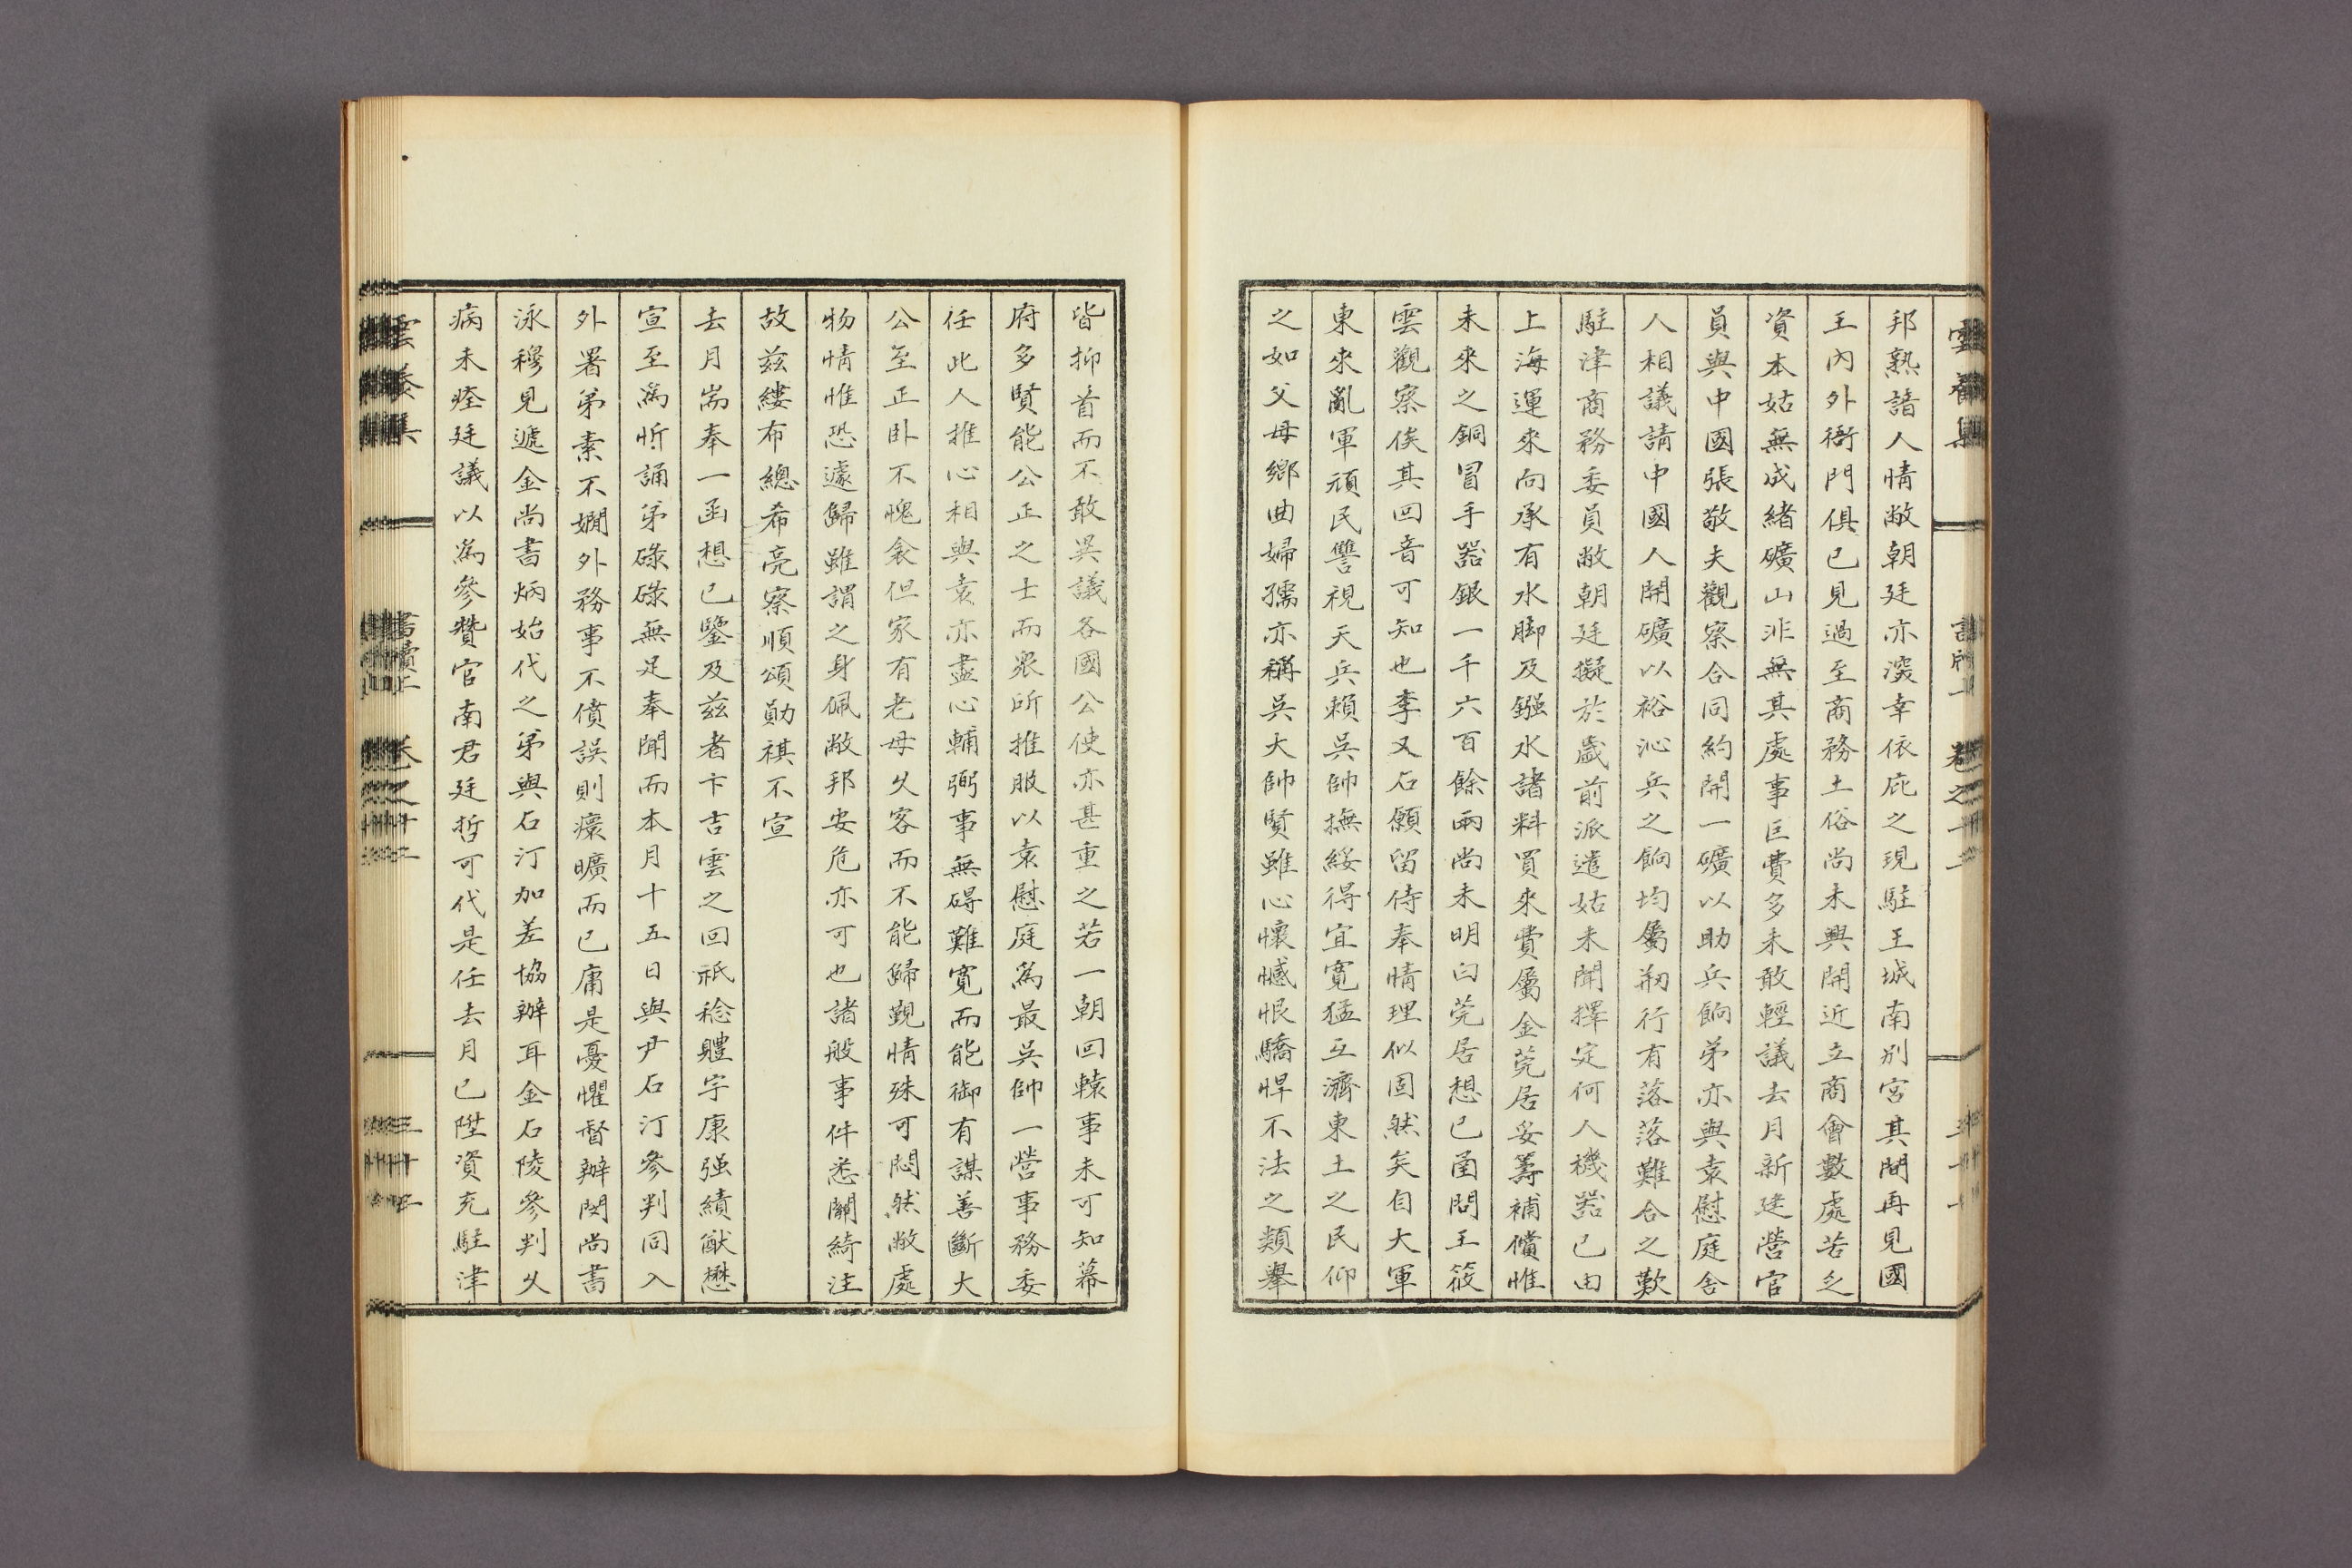 邦熟諳人情敝朝廷亦深幸依庇之現駐王城南別宮其間再見國
王內外衙門俱已見過至商務土俗尚未興開近立商會數處苦乏
資本姑無成緒礦山非無其處事巨費多未敢輕議去月新建營官
員與中國張敬夫觀察合同約開一礦以助兵餉弟亦與袁慰庭舍
人相議請中國人開礦以裕沁兵之餉均屬剏行有落落難合之歎
駐津商務委員敝朝廷擬於歲前派遣姑未聞擇定何人機器已由
上海運來向承有水脚及鏹水諸料買來費屬金莞居妥籌補償惟
未來之銅冒手器銀一千六百餘兩尚未明白莞居想已函問王筱
雲觀察俟其回音可知也李又石願留侍奉情理似固然矣自大軍
東來亂軍頑民讐視天兵賴吳帥撫綏得宜寬猛互濟東土之民仰
之如父母鄉曲婦孺亦稱吳大帥賢雖心懷憾恨驕悍不法之類舉
皆抑首而不敢異議各國公使亦甚重之若一朝回轅事未可知幕
府多賢能公正之士而衆所推服以袁慰庭爲最吳帥一營事務委
任此人推心相與袁亦盡心輔弼事無碍難寬而能御有謀善斷大
公至正卧不愧衾但家有老母久客而不能歸覲情殊可悶然敝處
物情惟恐遽歸雖謂之身佩敝邦安危亦可也諸般事件悉關綺注
故茲縷布總希亮察順頌勛祺不宣
去月耑奉一函想已鑒及茲者卞吉雲之回祇稔體宇康强績猷懋
宣至爲忻誦弟碌碌無足奉聞而本月十五日與尹石汀參判同入
外署弟素不嫺外務事不僨誤則癏曠而已庸是憂懼督辦閔尚書
泳穆見遞金尚書炳始代之弟與石汀加差協辦耳金石陵參判久
病未痊廷議以爲參贊官南君廷哲可代是任去月已陞資充駐津